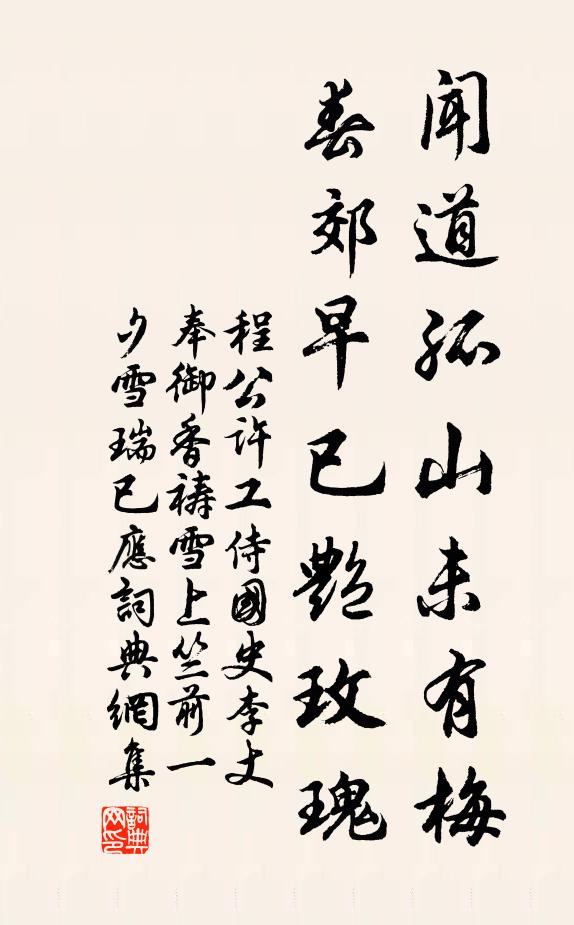 聞道孤山未有梅
春郊早已艷玫瑰
程公許工侍國史李丈
奉御香禱雪上竺前一
夕雪瑞已應詞典網集
詞典網印